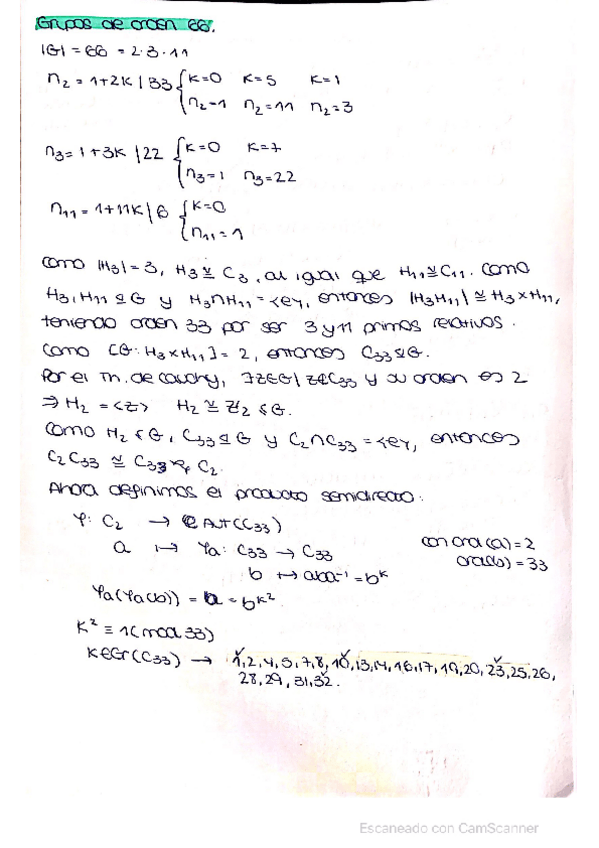 Grupos de orden 66.
|G| = 66 = 2·3·11
n₂ = 1+2k | 33 { k=0 k=5 k=1
n₂=1 n₂=11 n₂=3
n₃ = 1+3k | 22 { k=0 k=7
n₃=1 n₃=22
n₁₁ = 1+11k | 6 { k=0
n₁₁ = 1
Como |H₃| = 3, H₃ ≅ C₃, al igual que H₁₁ ≅ C₁₁. Como
H₃, H₁₁ ⊴ G y H₃∩H₁₁ = {e}, entonces |H₃H₁₁| ≅ H₃ × H₁₁,
teniendo orden 33 por ser 3 y 11 primos relativos.
Como [G: H₃×H₁₁] = 2, entonces C₃₃ ⊴ G.
Por el Th. de Cauchy, ∃z∈G / z∉C₃₃ y su orden es 2
⇒ H₂ = <z> H₂ ≅ ℤ₂ ≤ G.
Como H₂ ≤ G, C₃₃ ⊴ G y C₂∩C₃₃ = {e}, entonces
C₂C₃₃ ≅ C₃₃ ⋊φ C₂.
Ahora definimos el producto semidirecto:
φ: C₂ → Aut(C₃₃)
a ↦ φa: C₃₃ → C₃₃
con ord(a) = 2
ord(b) = 33
b ↦ aba⁻¹ = bᵏ
φa(φa(b)) = b = bᵏ²
k² ≡ 1 (mod 33)
k∈Gr(C₃₃) → 1,2,4,5,7,8,10,13,14,16,17,19,20,23,25,26,
28,29,31,32.
Escaneado con CamScanner